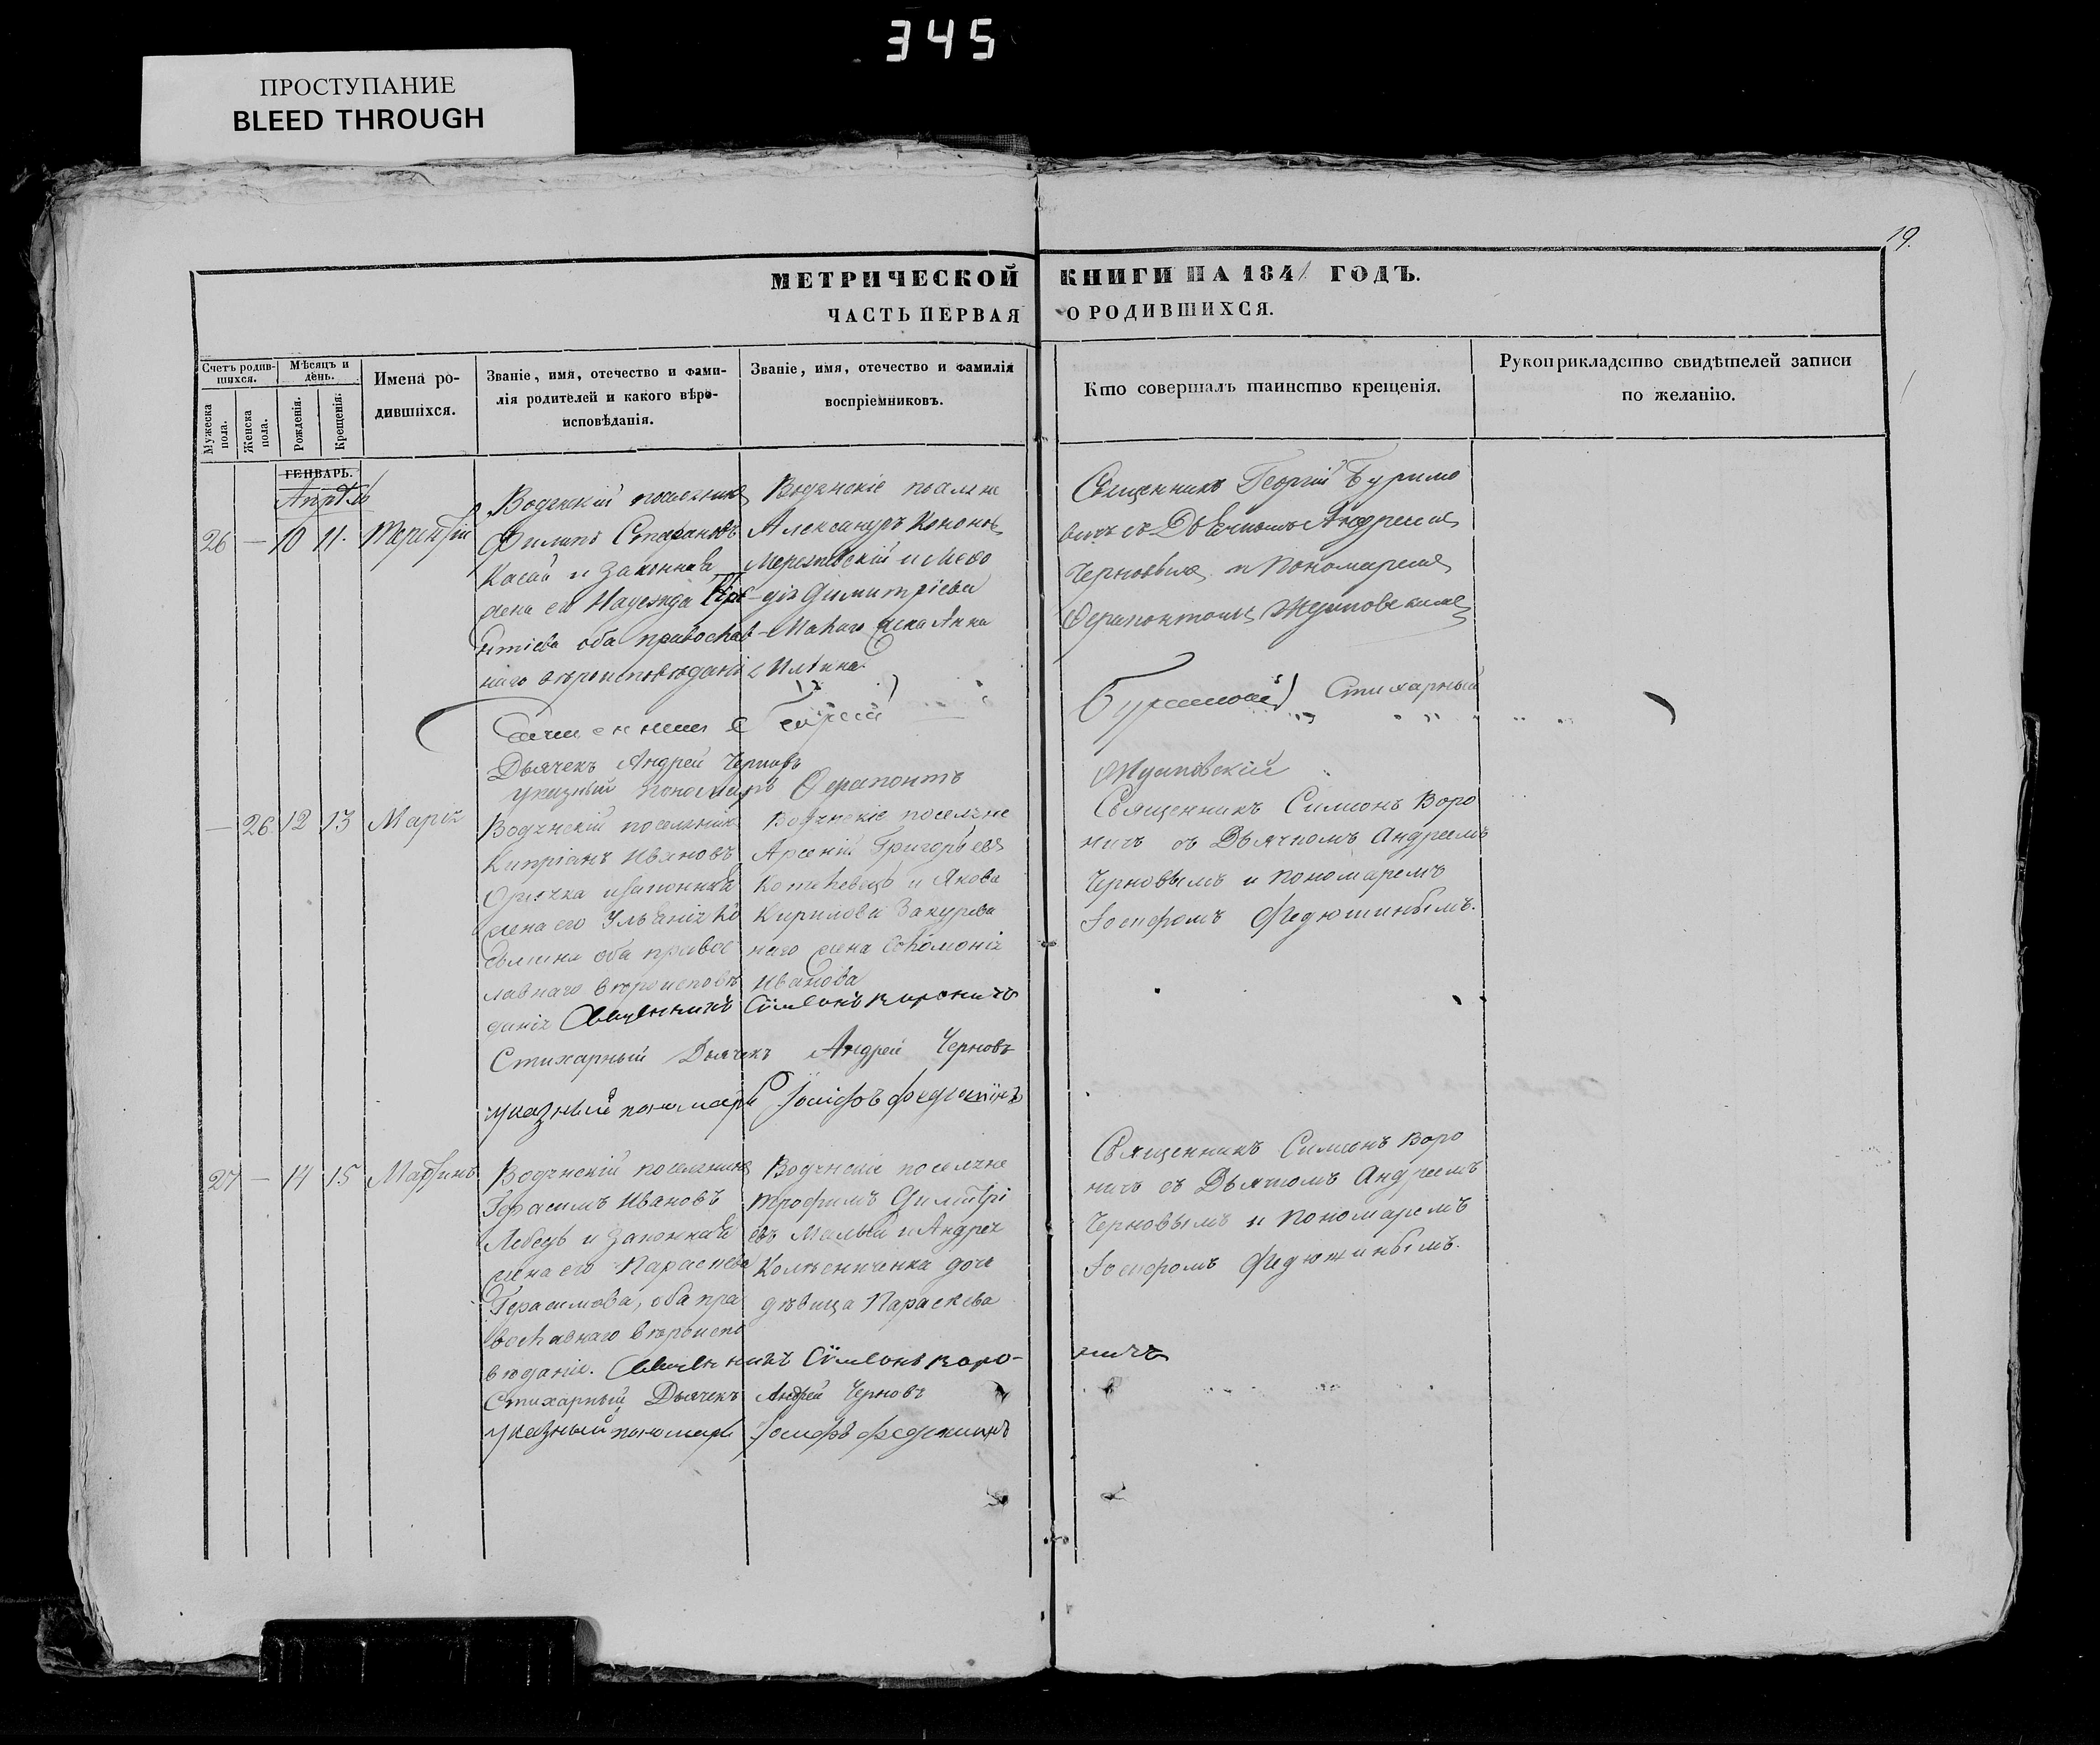 345
ПРОСТУПАНИЕ
BLEED THROUGH
19.
МЕТРИЧЕСКОЙ КНИГИ НА 1841 ГОДЪ.
ЧАСТЬ ПЕРВАЯ О РОДИВШИХСЯ.
Счетъ родившихся.
Мужеска пола.
Женска пола.
Мѣсяцъ и день.
Рожденія.
Крещенія.
Имена родившихся.
Званіе, имя, отечество и фамилія родителей и какого вѣроисповѣданія.
Званіе, имя, отечество и фамилія воспріемниковъ.
Кто совершалъ таинство крещенія.
Рукоприкладство свидѣтелей записи по желанію.
ГЕНВАРЬ.
Апрѣль
26 — 10 11. Терентій
Водянскій поселянинъ
Филипъ
Касай и законная
жена его Надежда
оба православ
наго вѣроисповѣданія
Водянскіе поселяне
Александръ Кононовъ
Мережевскій и
Димитріева
жена Анна
Священникъ Георгій Буримо
вичъ съ Дьячкомъ Андреемъ
Черновымъ и Пономаремъ
Ферапонтомъ Жуковскимъ
Священникъ Георгій Буримовичъ Стихарный
Дьячекъ Андрей Черновъ
указный пономарь Ферапонтъ Жуковскій
— 26 12 13 Марія
Водянскій поселянинъ
Кипріанъ Ивановъ
и законная
жена его Ульянія
оба правос
лавнаго вѣроисповѣ
данія
Водянскіе поселяне
Арсеній Григорьевъ
и Якова
Кирилова
наго жена Соломонія
Иванова
Священникъ Симеонъ Воро
ничъ съ Дьячкомъ Андреемъ
Черновымъ и Пономаремъ
Іосифомъ Федюшинымъ.
Священникъ Сімеонъ Вороничъ
Стихарный Дьячекъ Андрей Черновъ
указный пономарь Іосифъ Федюшинъ
27 — 14 15 Мартинъ
Водянскій поселянинъ
Герасимъ Ивановъ
Лебедь и законная
жена его Параскева
Герасимова, оба пра
вославнаго вѣроиспо
вѣданія.
Водянскіе поселяне
Трофимъ Димитрі
евъ Малый и Андрея
Колесниченка дочь
дѣвица Параскева
Священникъ Симеонъ Воро
ничъ съ Дьячкомъ Андреемъ
Черновымъ и Пономаремъ
Іосифомъ Федюшинымъ.
Священникъ Сімеонъ Воро-
ничъ
Стихарный Дьячекъ Андрей Черновъ
указный пономарь Іосифъ Федюшинъ